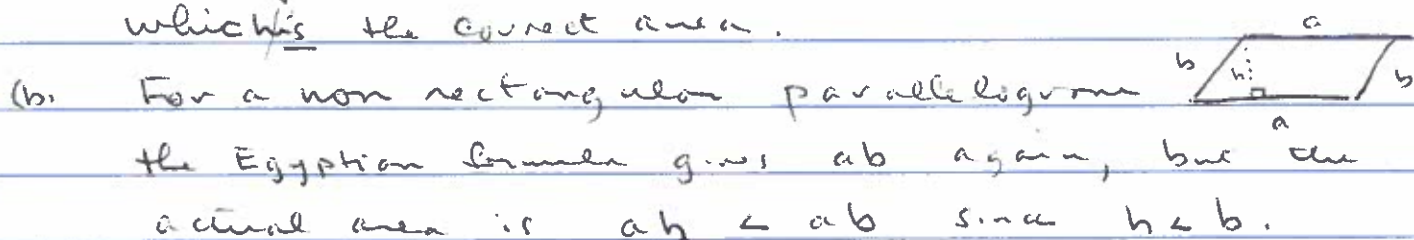 which is the correct area.
(b. For a non rectangular parallelogram
the Egyptian formula gives ab again, but the
actual area is ah < ab since h < b.
a
b
h
b
a